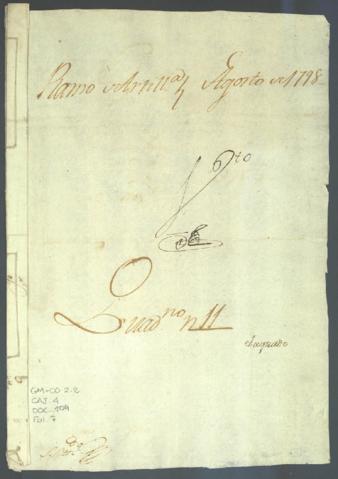 Ramo de Artill.a Agosto de 1798
6to
Quad.no n 11
GM-CO 2.2
CAJ. 4
DOC. 104
Fol. 7